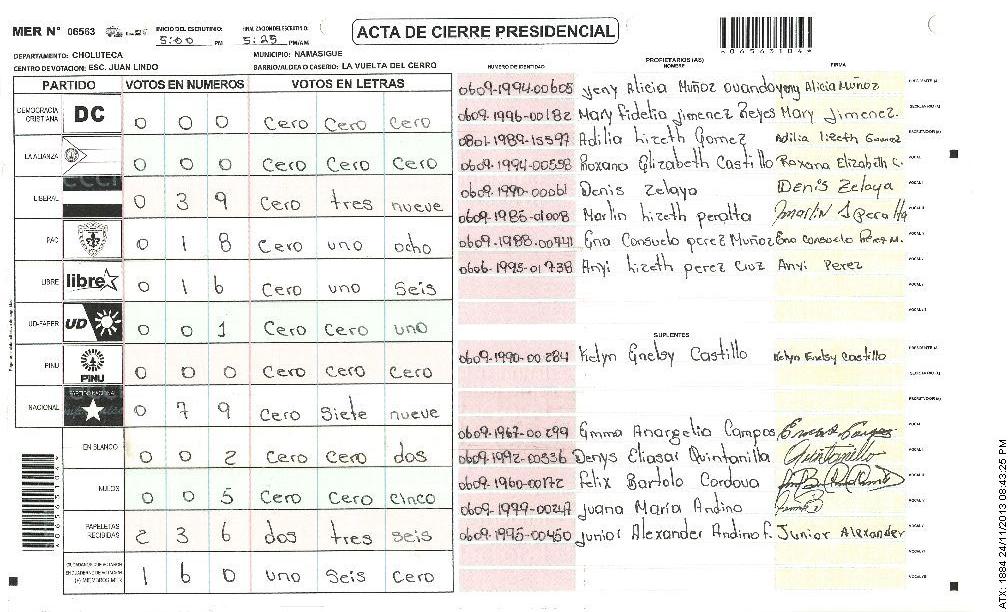 MER N° 06563
INICIO DEL ESCRUTINIO: 5:00 PM
FINALIZACION DEL ESCRUTINIO: 5:25 PM/AM
ACTA DE CIERRE PRESIDENCIAL
* 0 6 5 6 3 1 0 4 *
DEPARTAMENTO: CHOLUTECA
MUNICIPIO: NAMASIGUE
CENTRO DE VOTACION: ESC. JUAN LINDO
BARRIO/ALDEA O CASERIO: LA VUELTA DEL CERRO
PARTIDO VOTOS EN NUMEROS VOTOS EN LETRAS
DEMOCRACIA CRISTIANA DC 0 0 0 Cero Cero Cero
LA ALIANZA 0 0 0 Cero Cero Cero
LIBERAL 0 3 9 Cero tres nueve
PAC 0 1 8 Cero uno ocho
LIBRE libre 0 1 6 Cero uno Seis
UD-FAPER UD 0 0 1 Cero Cero uno
PINU PINU 0 0 0 Cero Cero Cero
NACIONAL PARTIDO NACIONAL 0 7 9 Cero Siete nueve
EN BLANCO 0 0 2 Cero Cero dos
NULOS 0 0 5 Cero Cero cinco
PAPELETAS RECIBIDAS 2 3 6 dos tres seis
1 6 0 uno Seis Cero
NUMERO DE IDENTIDAD PROPIETARIOS (AS) NOMBRE FIRMA
0609-1994-00605 Jeny Alicia Muñoz ovando yeny Alicia Muñoz
0609-1996-00182 Mary Fidelia jimenez Reyes Mary Jimenez.
0801-1989-15597 Adilia Lizeth Gomez Adilia lizeth Gomez
0609-1994-00558 Roxana Elizabeth Castillo Roxana Elizabeth C.
0609-1990-00061 Denis Zelaya Denis Zelaya
0609-1985-01008 Marlin Lizeth peralta
0609-1988-00741 Ena Consuelo perez Muñoz Ena Consuelo Perez M.
0606-1995-01738 Anyi Lizeth perez Cruz Anyi Perez
SUPLENTES
0609-1990-00284 Kelyn Gnelsy Castillo Kelyn Enelsy Castillo
0609-1967-00299 Emma Anargelia Campos
0609-1992-00536 Denys Eliasar Quintanilla Quintanilla
0609-1960-00172 Felix Bartolo Cordova
0609-1999-00247 Juana Maria Andino
0609-1995-00450 Junior Alexander Andino f. Junior Alexander
ATX: 1884 24/11/2013 08:43:25 PM